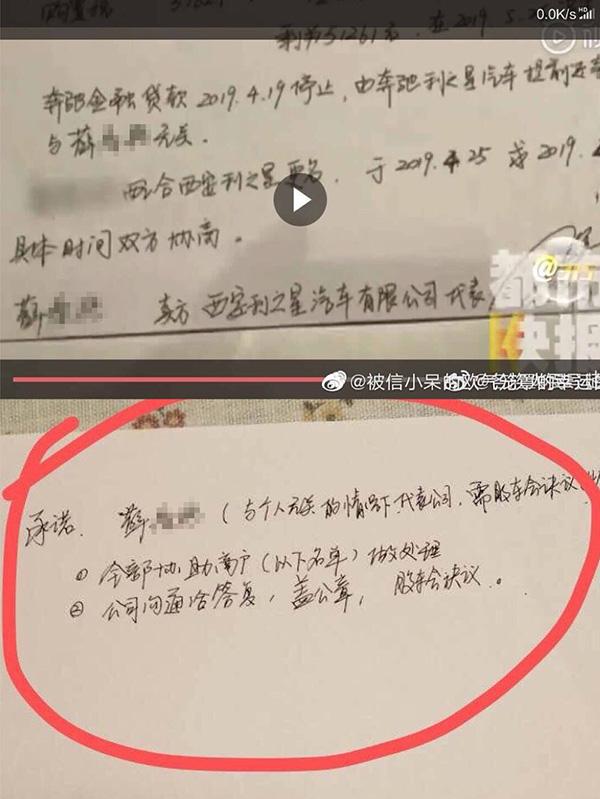 0.0K/s HD
购置税
剩余51261元. 在2019.5.2
奔驰金融贷款 2019.4.19停止, 由奔驰利之星汽车提前还
与薛 无关.
配合西安利之星更名. 于2019.4.25 或2019.
具体时间双方协商。
薛 卖方 西安利之星汽车有限公司代表
@都市
快报
@被信小呆的欧气笼罩的幸运
承诺. 薛 (与个人无关的情况下代表公司, 需股东会决议
① 全部协助商户(以下名单)做处理
② 公司沟通后答复, 盖公章, 股东会决议。